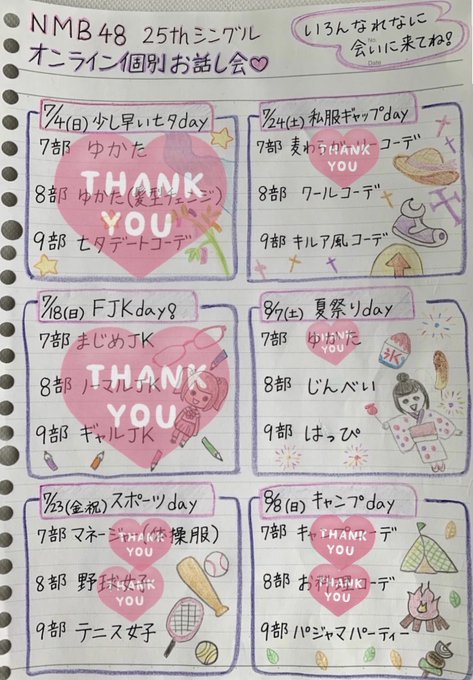 NMB48 25thシングル
オンライン個別お話し会♡
いろんなれなに
会いに来てね!
No.
Date
7/4(日)少し早い七夕day
7部 ゆかた
8部 ゆかた(髪型チェンジ)
9部 七夕デートコーデ
THANK
YOU
7/24(土)私服ギャップday
7部 麦わら コーデ
8部 クールコーデ
9部 キルア風コーデ
THANK
YOU
7/18(日)FJKday
7部 まじめJK
8部 ノーマルJK
9部 ギャルJK
THANK
YOU
8/7(土)夏祭りday
7部 ゆかた
8部 じんべい
9部 はっぴ
THANK
YOU
氷
7/23(金祝)スポーツday
7部 マネージャー(体操服)
8部 野球女子
9部 テニス女子
THANK
YOU
THANK
YOU
8/8(日)キャンプday
7部 キャンプコーデ
8部 お料理コーデ
9部 パジャマパーティー
THANK
YOU
THANK
YOU